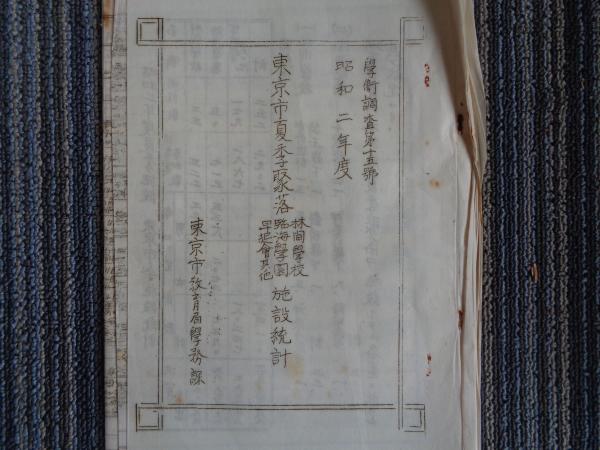 學衛調査第十五號
昭和二年度
東京市夏季聚落
林間學校
臨海學園
早起會其他
施設統計
東京市敎育局學務課